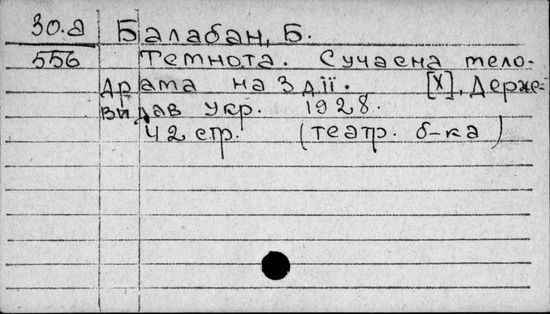 30.а Балабан, Б.
556 Темнота. Сучасна мело-
драма на 3 дії. [Х], Держ-
видав Укр. 1928.
42 стр. (театр. б-ка)